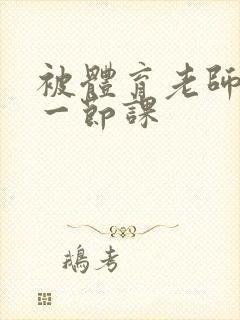 被體育老師
一節課
鵝考